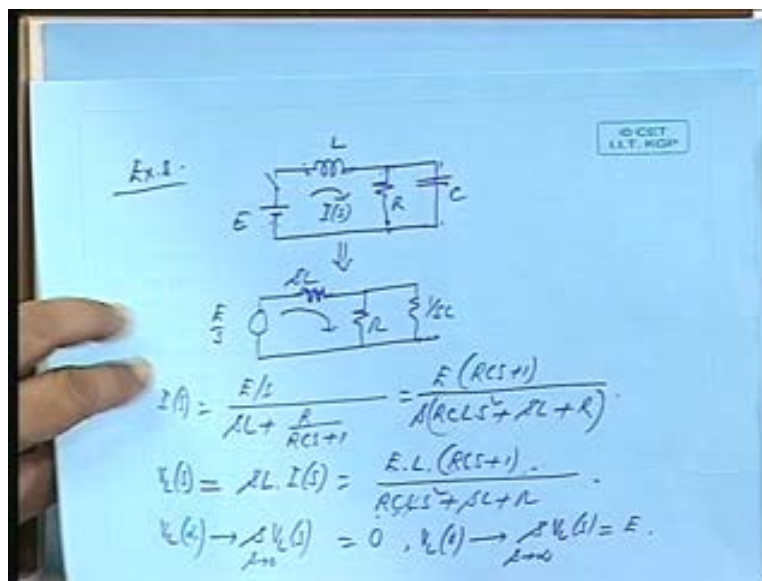 © CET
I.I.T. KGP
Ex.1.
L
E
I(s)
R
C
⇓
sL
E/s
R
1/sC
I(s) = (E/s) / (sL + R/(RCs+1)) = E(RCs+1) / (s(RCLs²+sL+R)).
V_L(s) = sL. I(s) = E.L.(RCs+1). / (RCLs²+sL+R).
V_L(α) → s V_L(s) s→0 = 0, V_L(0) → s V_L(s) s→α = E.